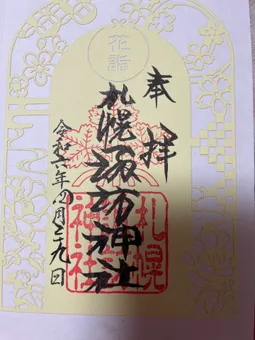 花詣
奉拝
札幌諏訪神社
令和六年四月二十九日
札幌
諏訪
神社